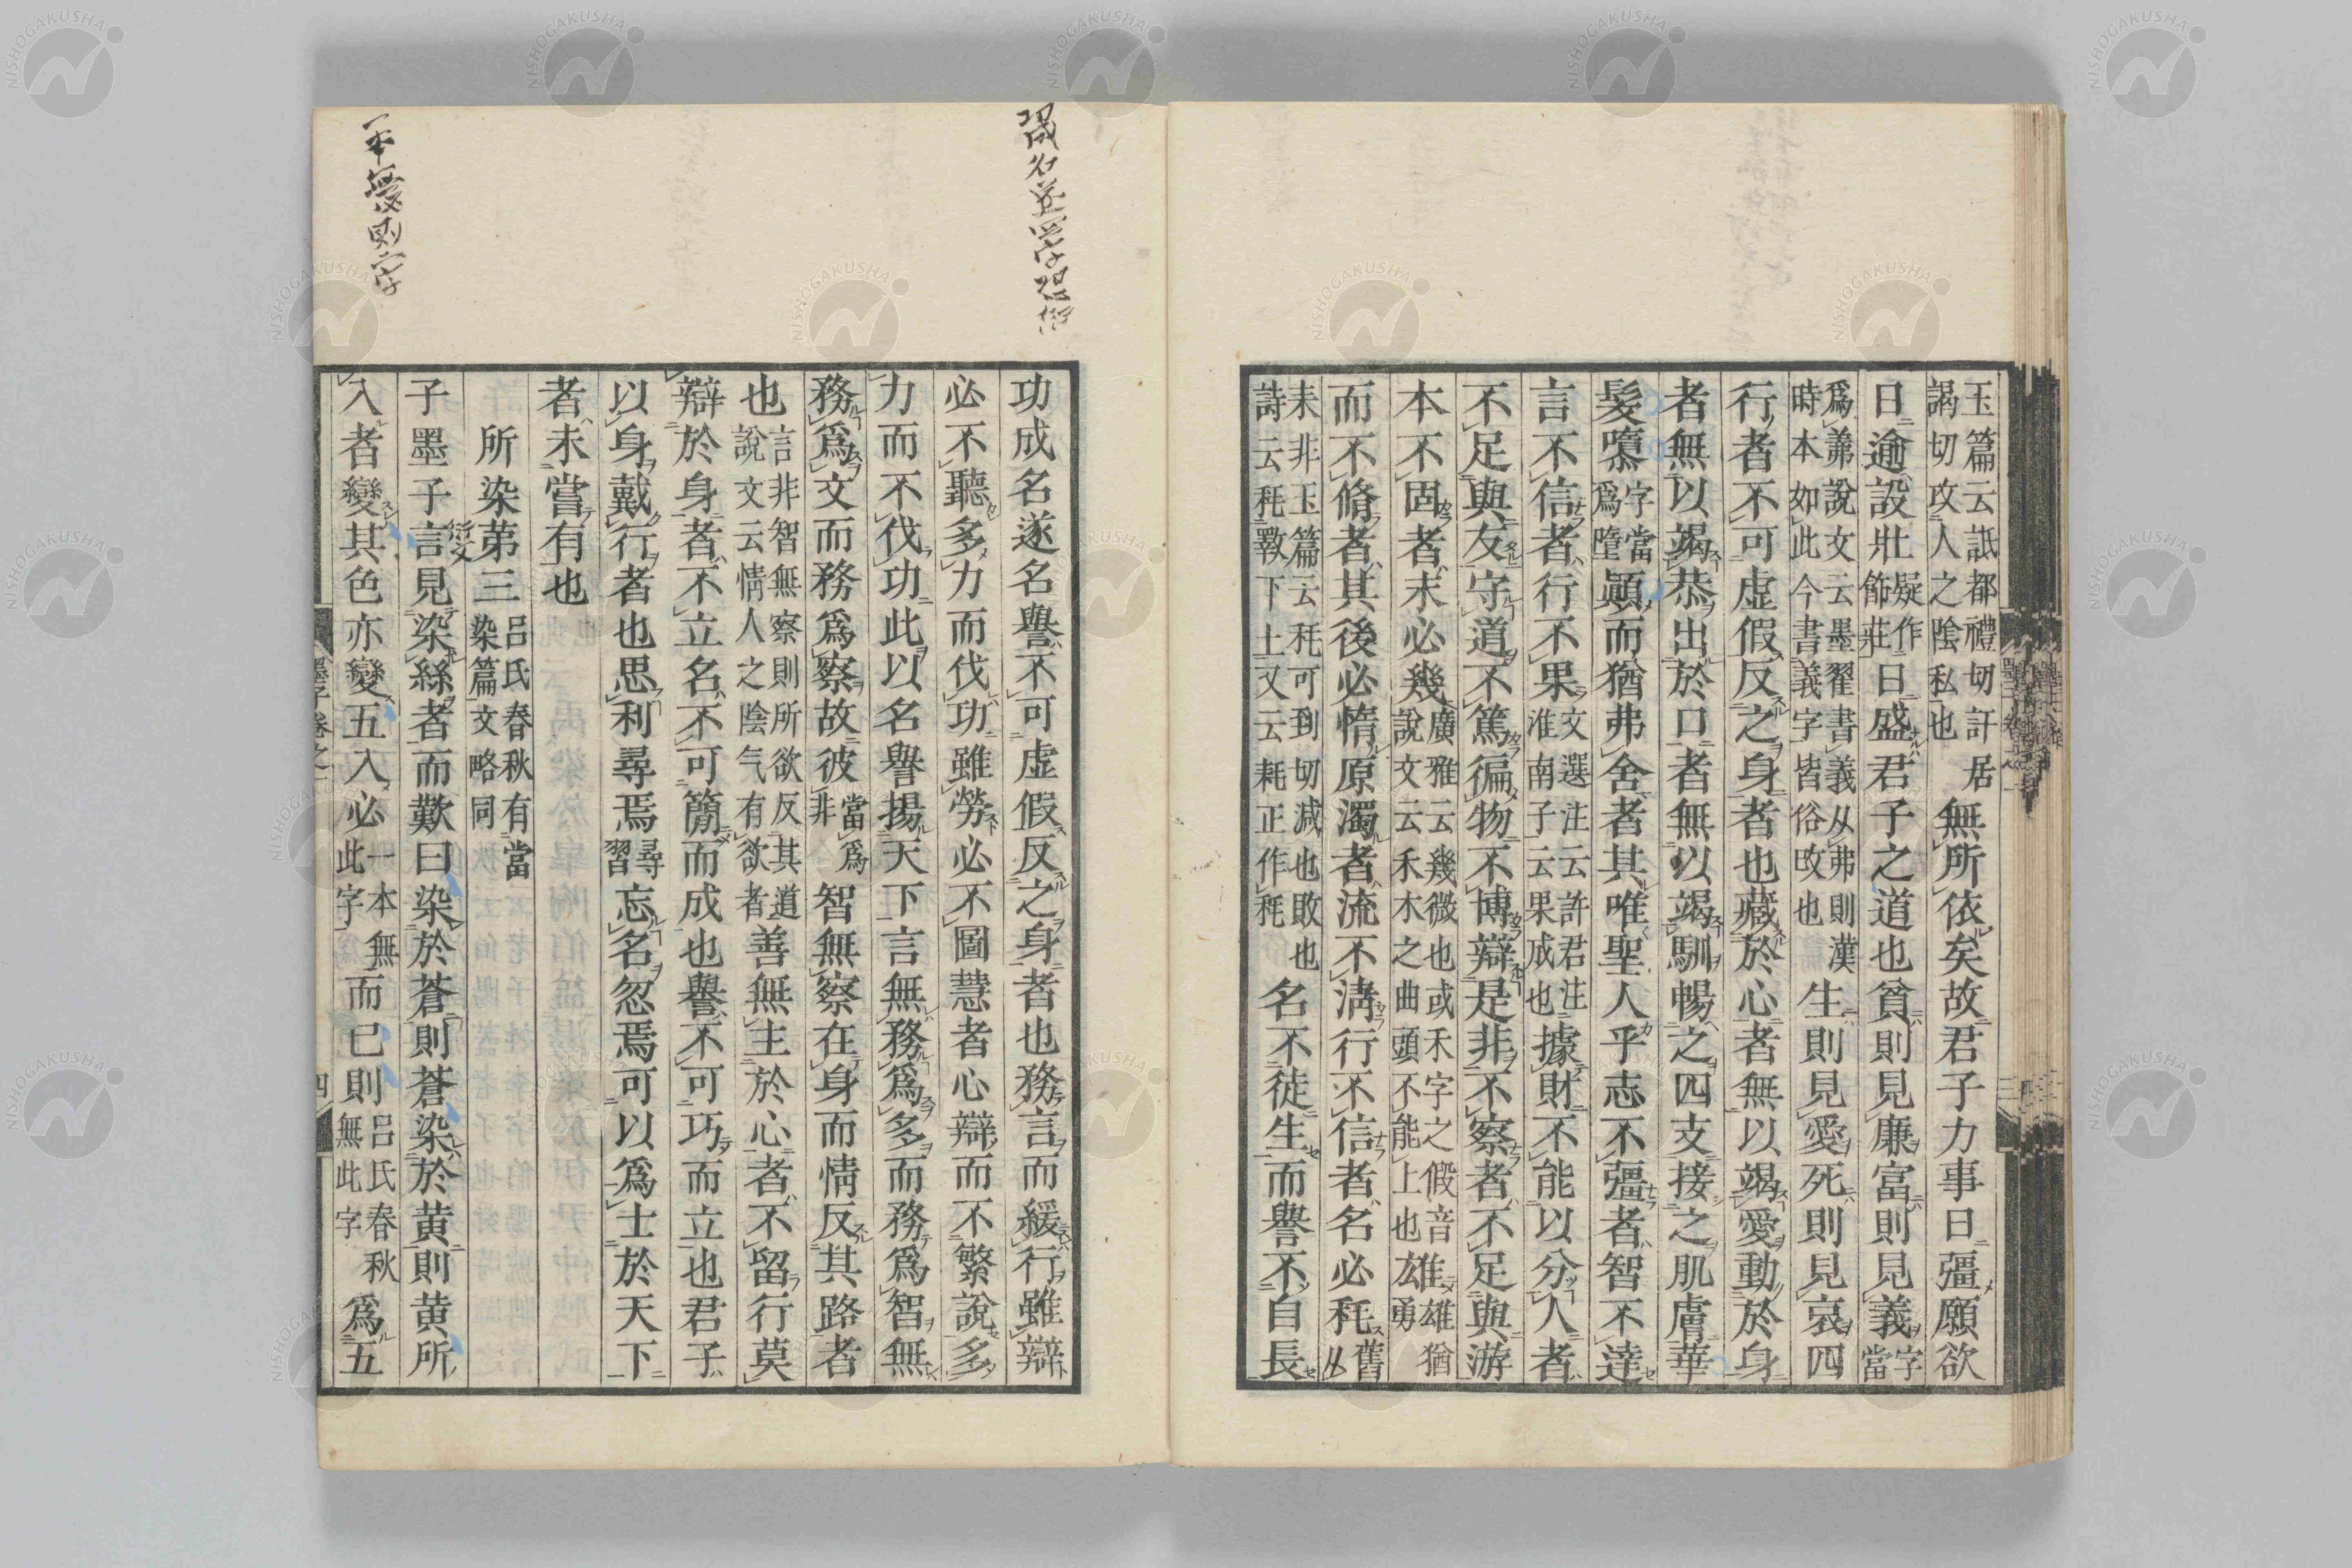 玉篇云詆都禮切訐居謁切攻人之陰私也無所依矣故君子力事日彊願欲
日逾設壯疑作飾莊日盛君子之道也貧則見廉富則見義字當
爲羛說文云墨翟書義从弗則漢時本如此今書義字皆俗改也生則見愛死則見哀四
行者不可虛假反之身者也藏於心者無以竭愛動於身
者無以竭恭出於口者無以竭馴暢之四支接之肌膚華
髮隳字當爲墮顚而猶弗舍者其唯聖人乎志不彊者智不達
言不信者行不果文選注云許君注淮南子云果成也據財不能以分人者不
不足與友守道不篤徧物不博辯是非不察者不足與游
本不固者末必幾廣雅云幾微也或禾字之假音說文云禾木之曲頭不能上也雄猶雄勇
而不脩者其後必惰原濁者流不淸行不信者名必秏舊从
耒非玉篇云秏可到切減也敗也詩云秏斁下土又云耗正作秏名不徒生而譽不自長
成名遂四字
功成名遂名譽不可虛假反之身者也務言而緩行雖辯
必不聽多力而伐功雖勞必不圖慧者心辯而不繁說多
力而不伐功此以名譽揚天下言無務爲多而務爲智無
務爲文而務爲察故彼當爲非智無察在身而情反其路者
也言非智無察則所欲反其道說文云情人之陰气有欲者善無主於心者不留行莫
辯於身者不立名不可簡而成也譽不可巧而立也君子
以身戴行者也思利尋焉尋習忘名忽焉可以爲士於天下
者未嘗有也
所染第三呂氏春秋有當染篇文略同
衍文
子墨子言見染絲者而歎曰染於蒼則蒼染於黃則黃所
一本無變則字
入者變其色亦變五入必一本無此字而已則呂氏春秋無此字爲五
墨子卷之一
四
NISHOGAKUSHA